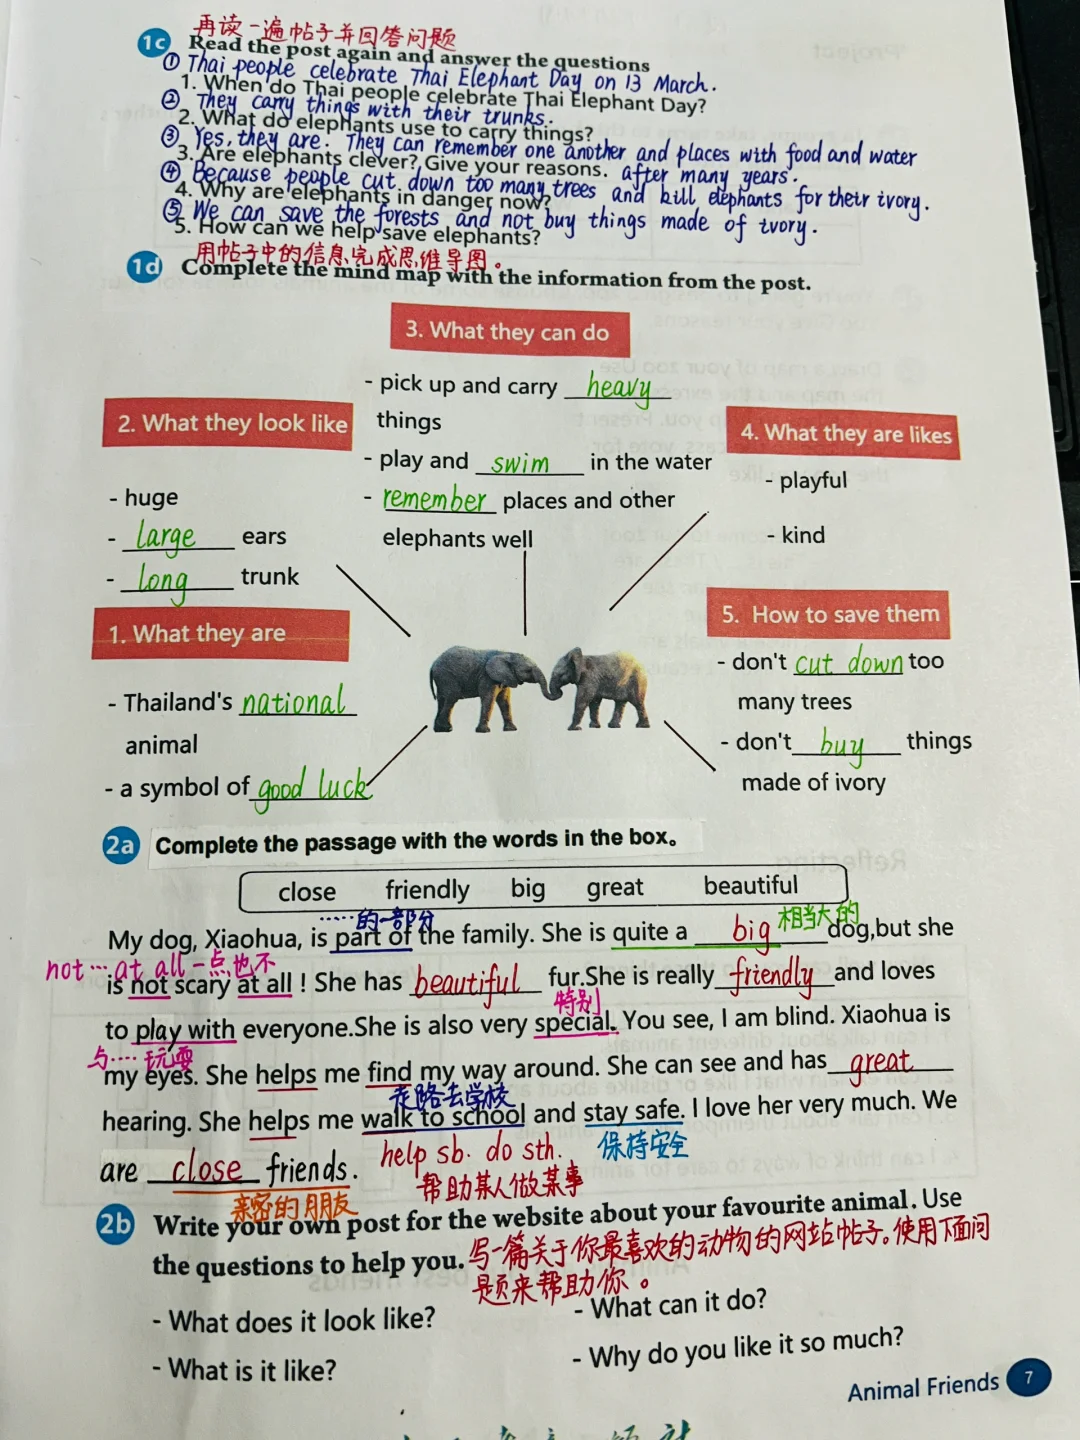 再读一遍帖子并回答问题
1c Read the post again and answer the questions
① Thai people celebrate Thai Elephant Day on 13 March.
1. When do Thai people celebrate Thai Elephant Day?
② They carry things with their trunks.
2. What do elephants use to carry things?
③ Yes, they are. They can remember one another and places with food and water
3. Are elephants clever? Give your reasons. after many years.
④ Because people cut down too many trees and kill elephants for their ivory.
4. Why are elephants in danger now?
⑤ We can save the forests and not buy things made of ivory.
5. How can we help save elephants?
用帖子中的信息完成思维导图。
1d Complete the mind map with the information from the post.
3. What they can do
- pick up and carry heavy
things
- play and swim in the water
- remember places and other
elephants well
2. What they look like
- huge
- large ears
- long trunk
4. What they are likes
- playful
- kind
1. What they are
- Thailand's national
animal
- a symbol of good luck
5. How to save them
- don't cut down too
many trees
- don't buy things
made of ivory
2a Complete the passage with the words in the box.
close friendly big great beautiful
……的一部分
相当大的
My dog, Xiaohua, is part of the family. She is quite a big dog,but she
not…at all 一点也不
is not scary at all ! She has beautiful fur.She is really friendly and loves
特别
to play with everyone.She is also very special. You see, I am blind. Xiaohua is
与…玩耍
my eyes. She helps me find my way around. She can see and has great
走路去学校
hearing. She helps me walk to school and stay safe. I love her very much. We
help sb. do sth. 保持安全
are close friends.
帮助某人做某事
亲密的朋友
2b Write your own post for the website about your favourite animal. Use
the questions to help you. 写一篇关于你最喜欢的动物的网站帖子。使用下面问
题来帮助你。
- What does it look like?
- What can it do?
- What is it like?
- Why do you like it so much?
Animal Friends 7